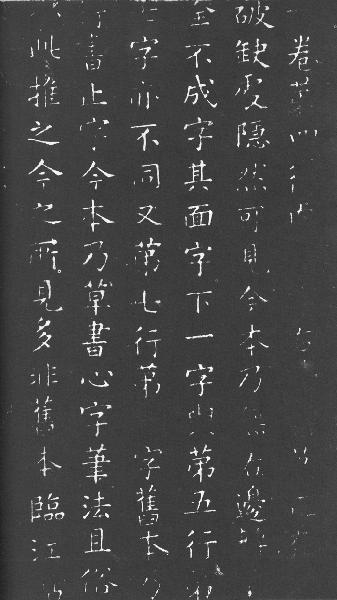 卷第四行內
破缺處隱然可見今本乃無右邊
全不成字其面字下一字與第五行
字亦不同又第七行第 字舊本乃
行書止字今本乃草書心字筆法且俗
以此推之今之所見多非舊本臨江